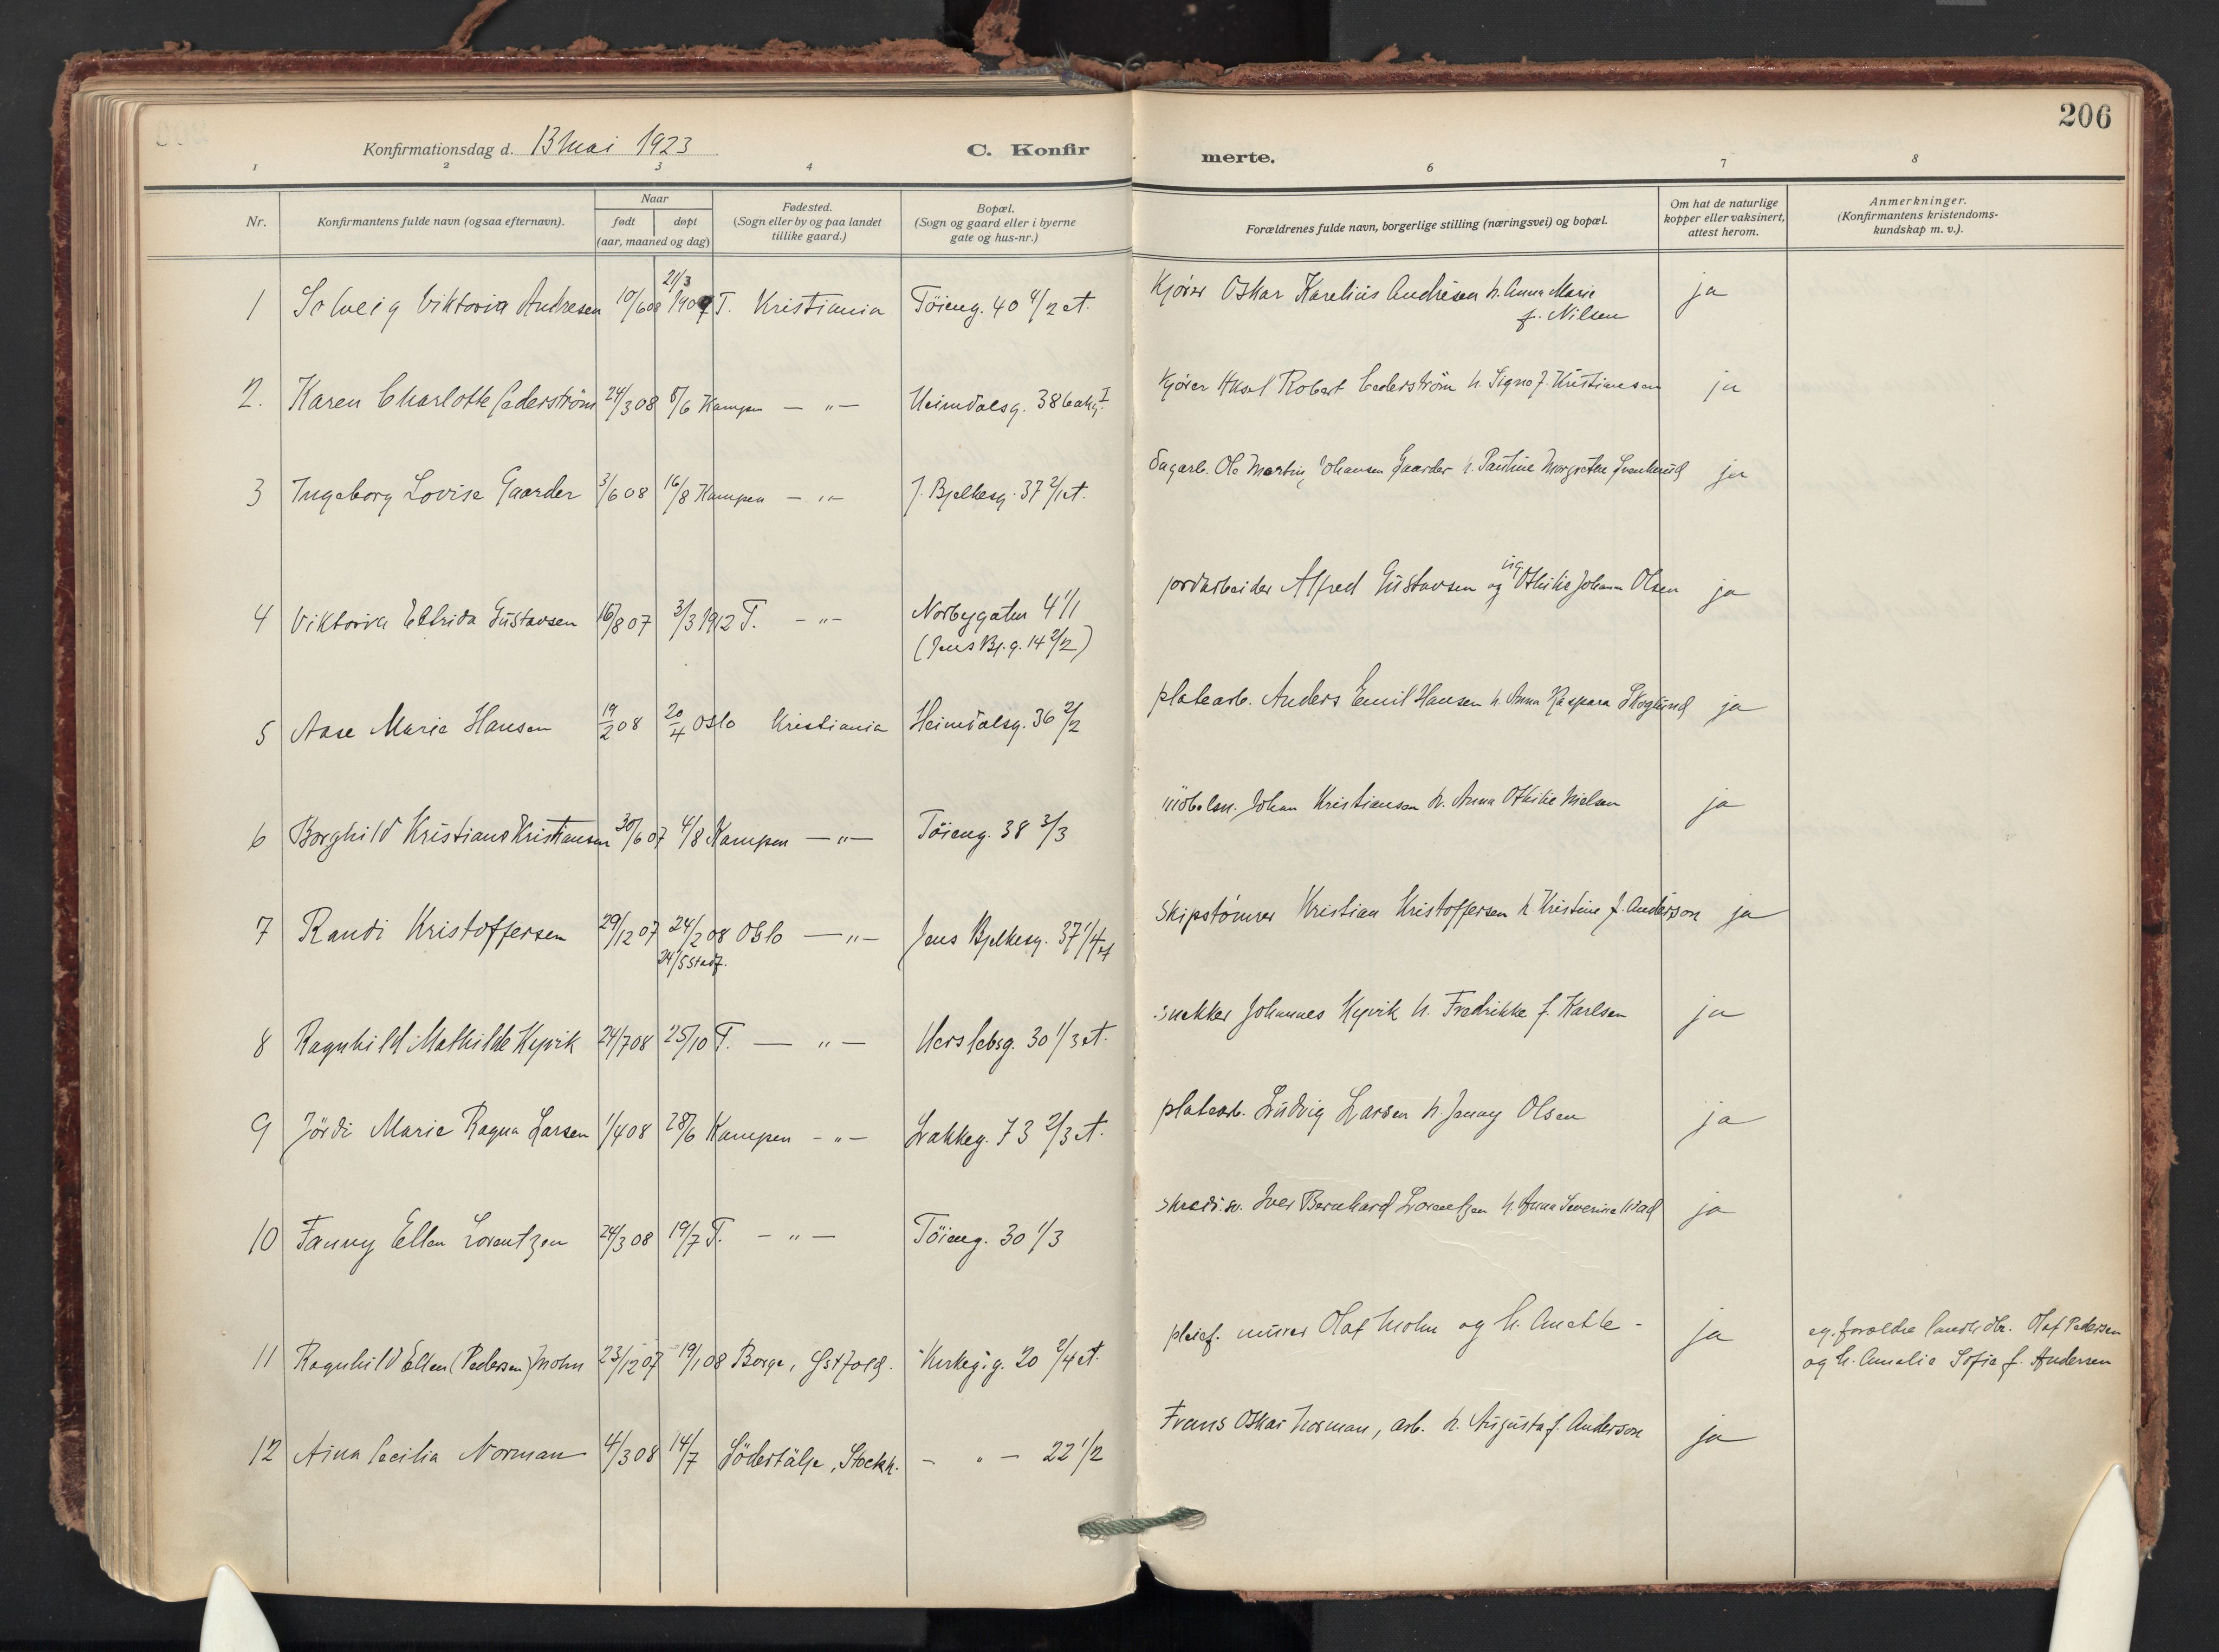 206
Konfirmationsdag d. 13 mai 1923
C. Konfir merte.
1 2 3 4 6 7 8
Nr. Konfirmantens fulde navn (ogsaa efternavn). Naar født døpt (aar, maaned og dag) Fødested. (Sogn eller by og paa landet tillike gaard.) Bopæl. (Sogn og gaard eller i byerne gate og hus-nr.) Forældrenes fulde navn, borgerlige stilling (næringsvei) og bopæl. Om hat de naturlige kopper eller vaksinert, attest herom. Anmerkninger. (Konfirmantens kristendoms-kundskap m. v.).
1 Solveig Viktoria Andresen 10/6 08 21/3 1909 T. Kristiania Töieng. 40 4/2 et. Kjører Oskar Karelius Andresen h. Anna Marie f. Nilsen ja
2. Karen Charlotte Cederström 24/3 08 8/6 Kampen — " — Heimdalsg. 38 bakg. I Kjører Aksel Robert Cederström h. Signe f. Kristiansen ja
3 Ingeborg Lovise Gaarder 3/6 08 16/8 Kampen — " — J. Bjelkesg. 37 2/1 et. Dagarb. Ole Martin Johansen Gaarder h. Pauline Margrethe ja
4 Viktoria Elfrida Gustavsen 16/8 07 3/3 1912 T. — " — Norbygaten 4 1/1
(Jens Bj.g. 14 2/2) jordarbeider Alfred Gustavsen og Othilie Johanne Olsen ja
5 Aase Marie Hansen 19/2 08 20/4 Oslo Kristiania Heimdalsg. 36 2/2 platearb. Anders Emil Hansen h. Anna Kaspara Skoglund ja
6 Borghild Kristiane Kristiansen 30/6 07 4/8 Kampen — " — Töieng. 38 3/3 möbelsn. Johan Kristiansen h. Anna Othilie Nielsen ja
7 Randi Kristoffersen 29/12 07 24/2 08 Oslo — " — Jens Bjelkesg. 37 1/4 et
24/5 stadf. Skipstömrer Kristian Kristoffersen h. Kristine f. Anderson ja
8 Ragnhild Mathilde Hyvik 24/7 08 25/10 T. — " — Herslebsg. 30 1/3 et. snekker Johannes Hyvik h. Fredrikke f. Karlsen ja
9 Jördi Marie Ragna Larsen 1/4 08 28/6 Kampen — " — Lakkeg. 73 2/3 et. platearb. Ludvig Larsen h. Jenny Olsen ja
10 Fanny Ellen Lorentzen 24/3 08 19/7 T. — " — Töieng. 30 1/3 Iver Bernhard Lorentzen h. Anna Severine ja
11 Ragnhild Ellen (Pedersen) Mohn 23/12 07 19/1 08 Borge, Østfold. Kirkeg.g. 20 2/4 et. pleief. murer Olaf Mohn og h. Anette - ja eg. forældre Olaf Pedersen
og h. Amalie Sofie f. Andersen
12 Aina Cecilia Norman 4/3 08 14/7 Södertälje, Stockh. — " — 22 1/2 Frans Oskar Norman, arb. h. Augusta f. Anderson ja